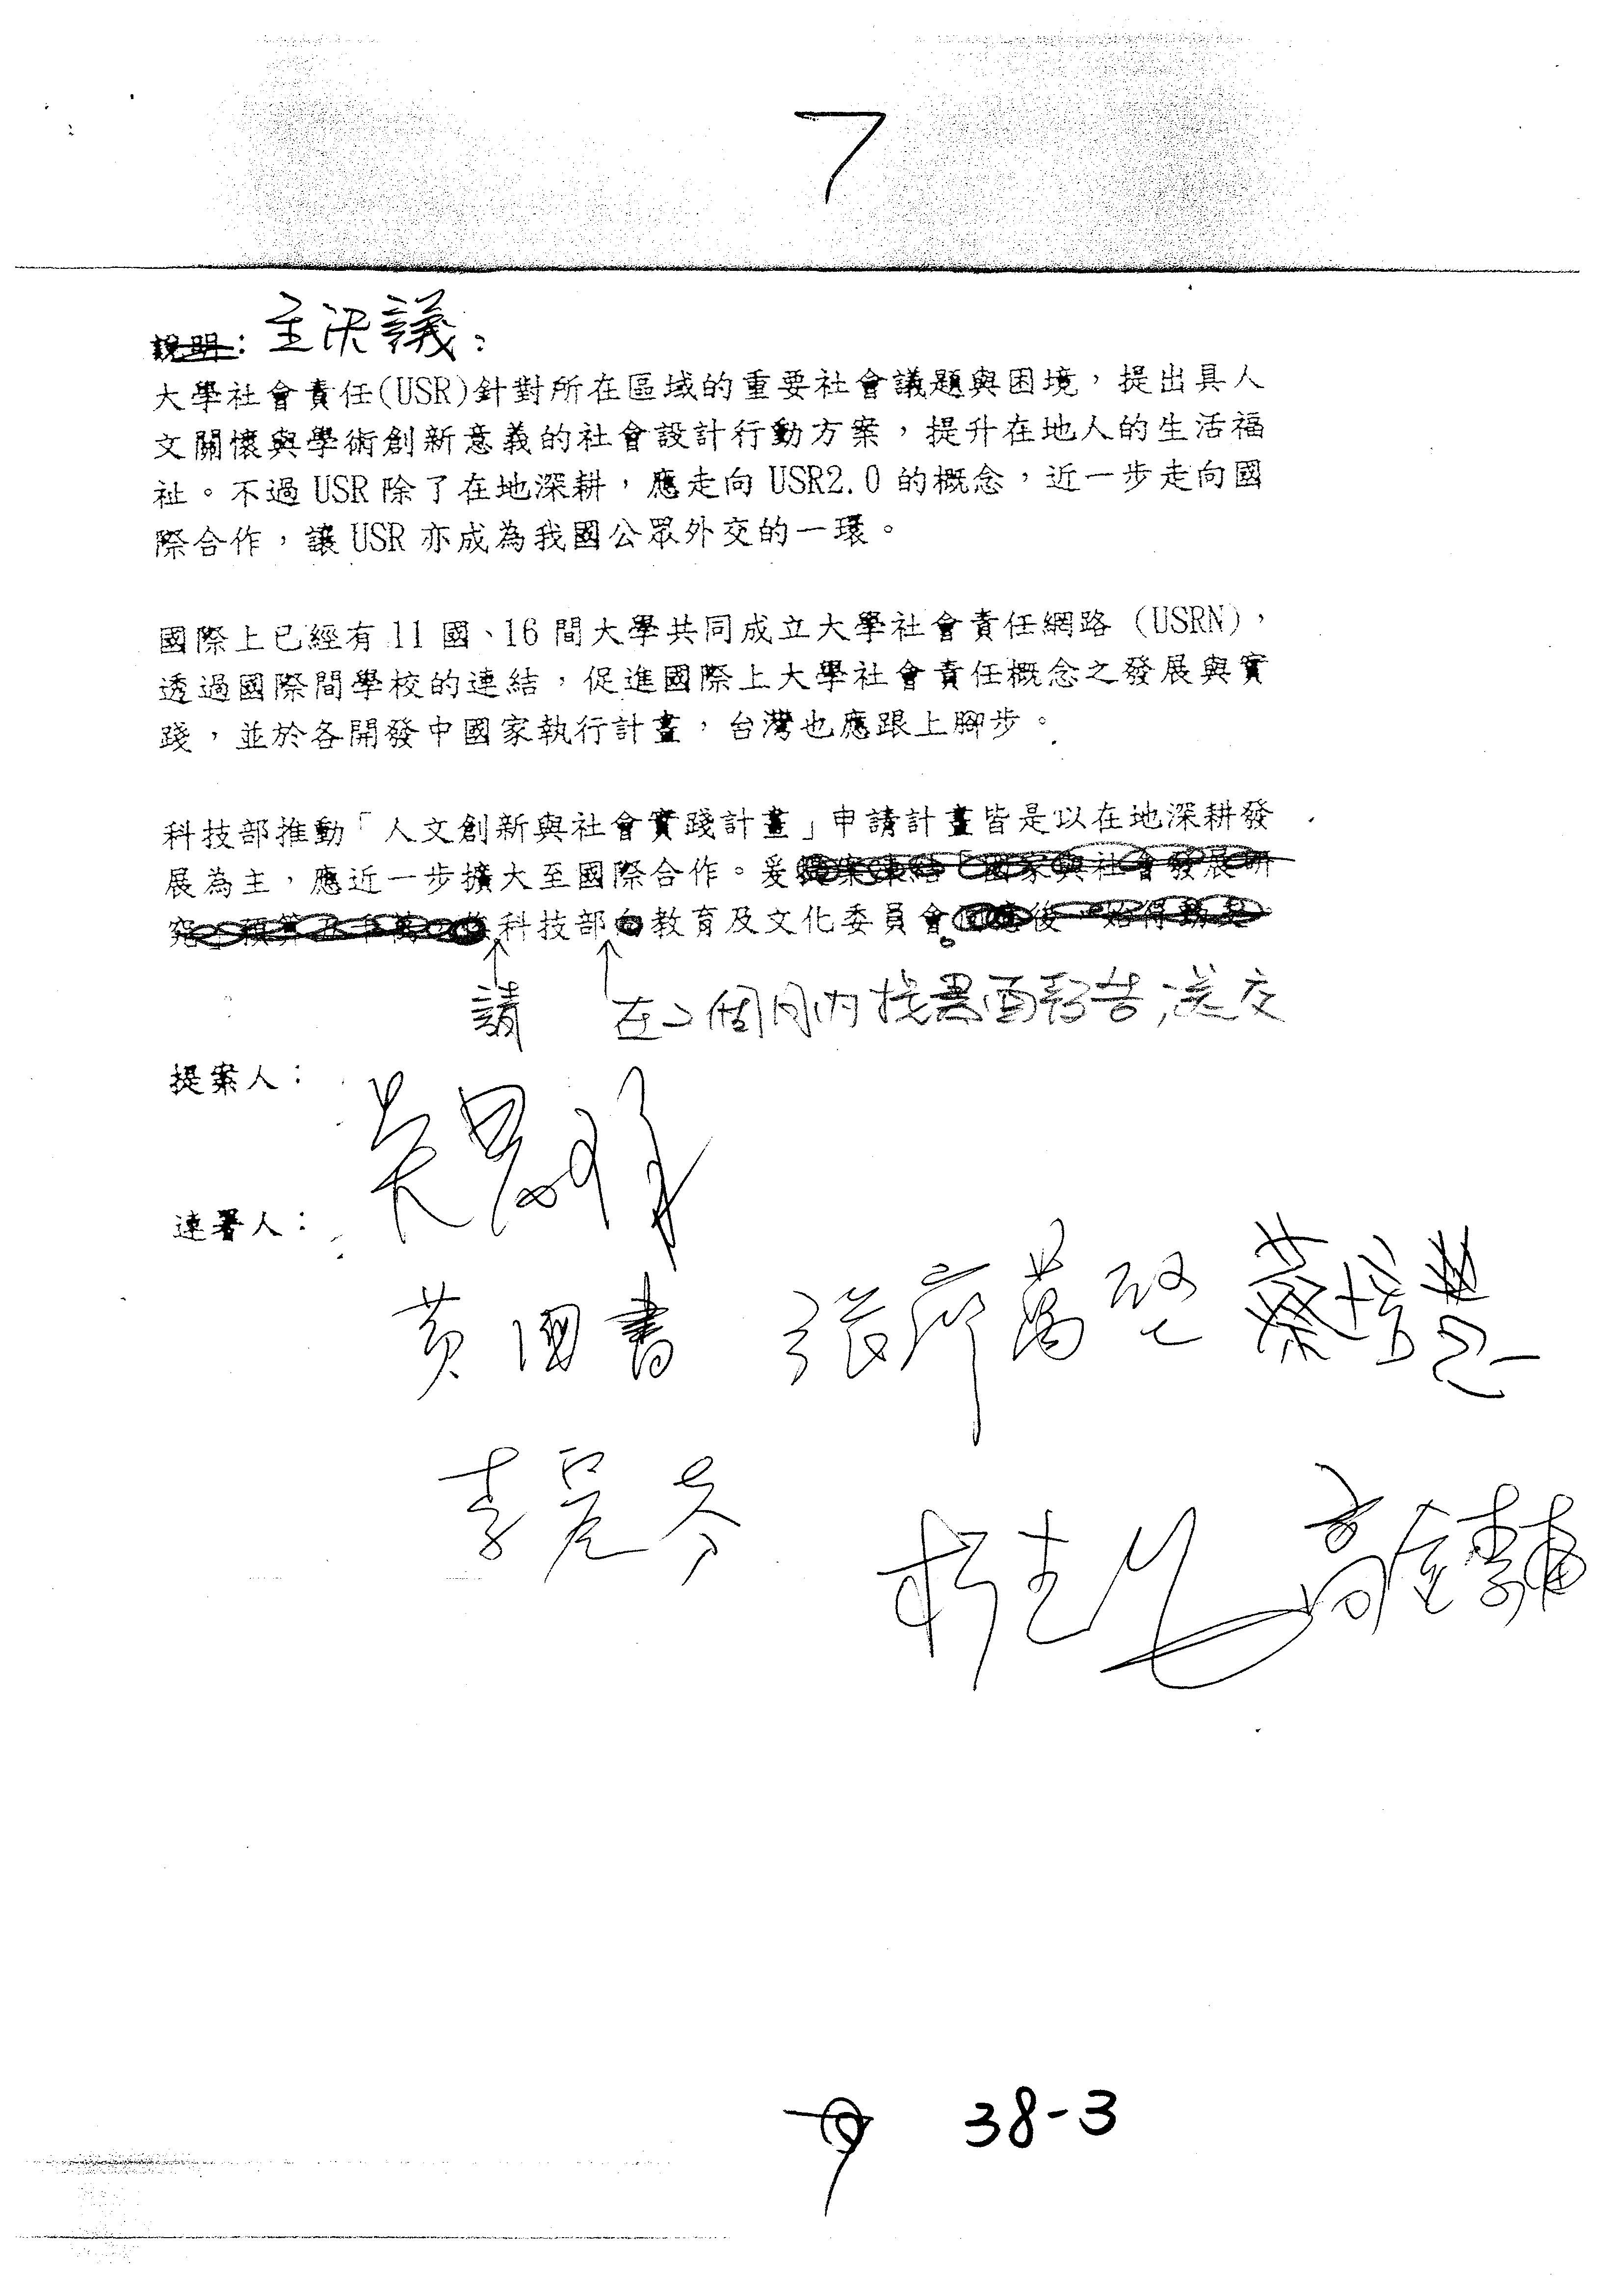 7
說明：主決議：
大學社會責任(USR)針對所在區域的重要社會議題與困境，提出具人
文關懷與學術創新意義的社會設計行動方案，提升在地人的生活福
祉。不過 USR 除了在地深耕，應走向 USR2.0 的概念，近一步走向國
際合作，讓 USR 亦成為我國公眾外交的一環。
國際上已經有 11 國、16 間大學共同成立大學社會責任網路（USRN），
透過國際間學校的連結，促進國際上大學社會責任概念之發展與實
踐，並於各開發中國家執行計畫，台灣也應跟上腳步。
科技部推動「人文創新與社會實踐計畫」申請計畫皆是以在地深耕發
展為主，應近一步擴大至國際合作。爰
科技部 教育及文化委員會。
請 在2個月內 書面報告,送交
提案人：
吳思瑤
連署人：
黃國書 張廖萬堅 蔡培慧
李麗芬
高金素
38-3